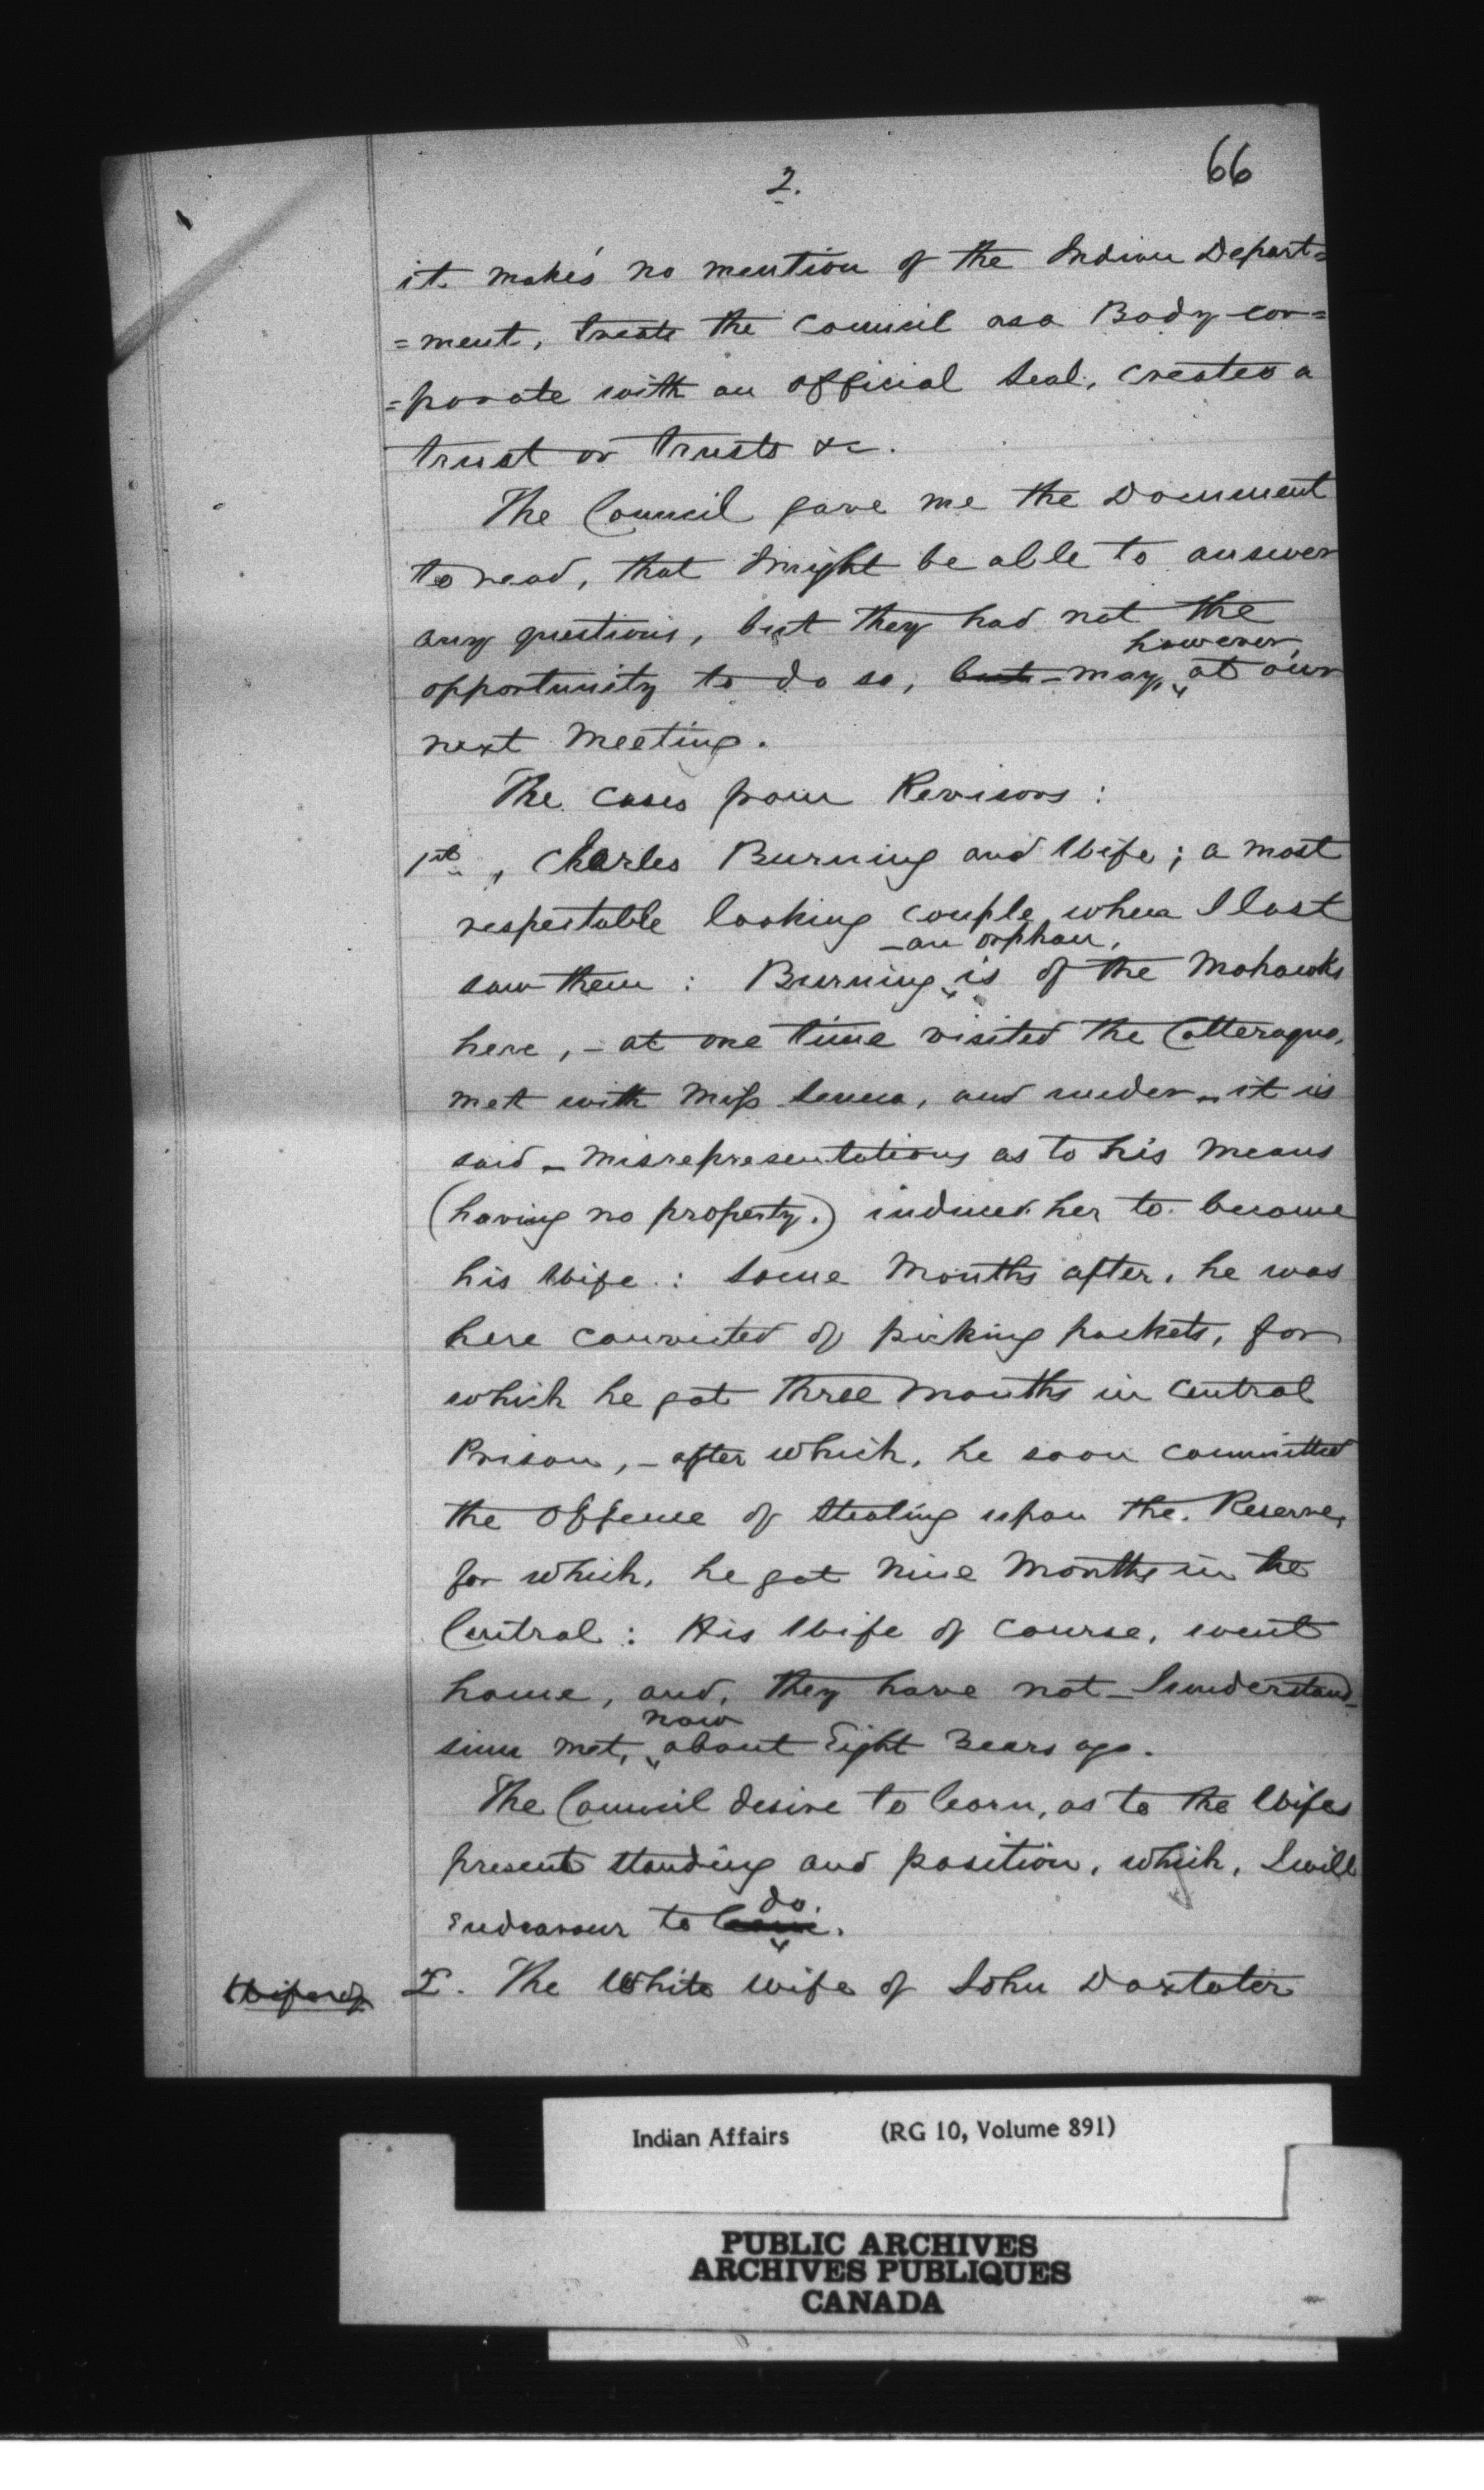 2.
66
it makes no mention of the Indian Depart=
=ment, treats the Council as a Body cor=
=porate with an official Seal, creates a
trust or trusts &c.
The Council gave me the Document
to read, that I might be able to answer
any questions, but they had not the
opportunity to do so, but - may, however, at our
next Meeting.
The Cases from Revisors :
1st, Charles Burning and Wife; a most
respectable looking couple when I last
saw them : Burning - an orphan, is of the Mohawks
here, - at one time visited the Catteragus,
met with Miss Seneca, and under - it is
said - misrepresentations as to his means
(having no property.) induced her to become
his Wife : Some Months after, he was
here convicted of picking pockets, for
which he got three Months in Central
Prison, - after which, he soon committed
the Offence of Stealing upon the Reserve,
for which, he got Nine Months in the
Central : His Wife of course, went
home, and, they have not - I understand -
since met, now about Eight Years ago.
The Council desire to learn, as to the Wifes
present standing and position, which, I will
Endeavour to learn do.
Wife of
2. The White Wife of John Doxtater
Indian Affairs (RG 10, Volume 891)
PUBLIC ARCHIVES
ARCHIVES PUBLIQUES
CANADA